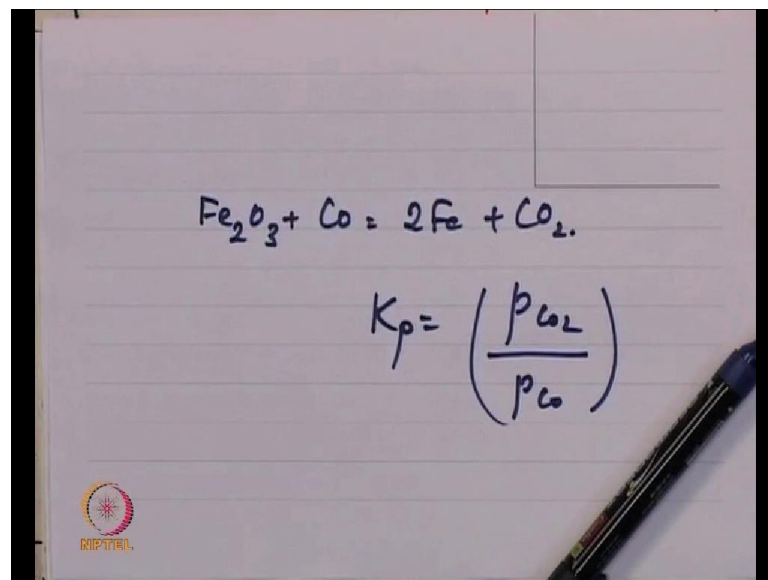 Fe₂O₃ + Co = 2Fe + CO₂.
Kp = (pco₂ / pco)
NPTEL